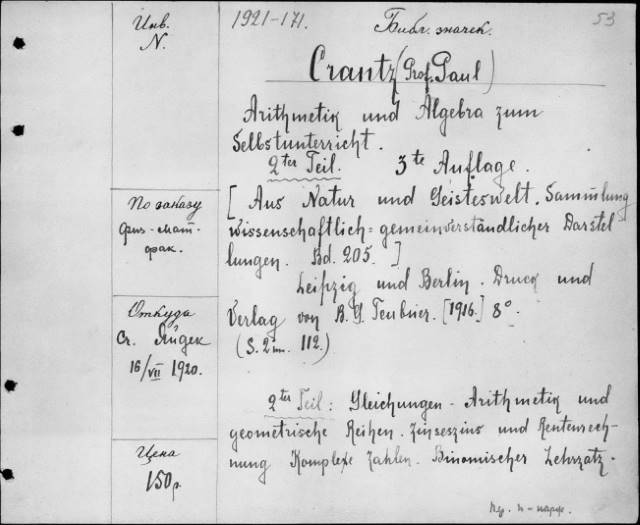 Инв.
N.
1921-171.
Библ. значек.
53
Crantz (Prof. Paul)
Arithmetik und Algebra zum
Selbstunterricht.
2ter Teil. 3te Auflage.
[Aus Natur und Geisteswelt. Sammlung
wissenschaftlich=gemeinverständlicher Darstel
lungen. Bd. 205.]
Leipzig und Berlin. Druck und
Verlag von B. G. Teubner. [1916.] 8°.
(S. 112.)
2ter Teil: Gleichungen - Arithmetik und
geometrische Reihen. Zinseszins und Rentenrech-
nung Komplexe Zahlen. Binomischer Lehrzatz.
По заказу
физ-мат-
фак.
Откуда
Ст.
16/VII 1920.
Цена
150 р.